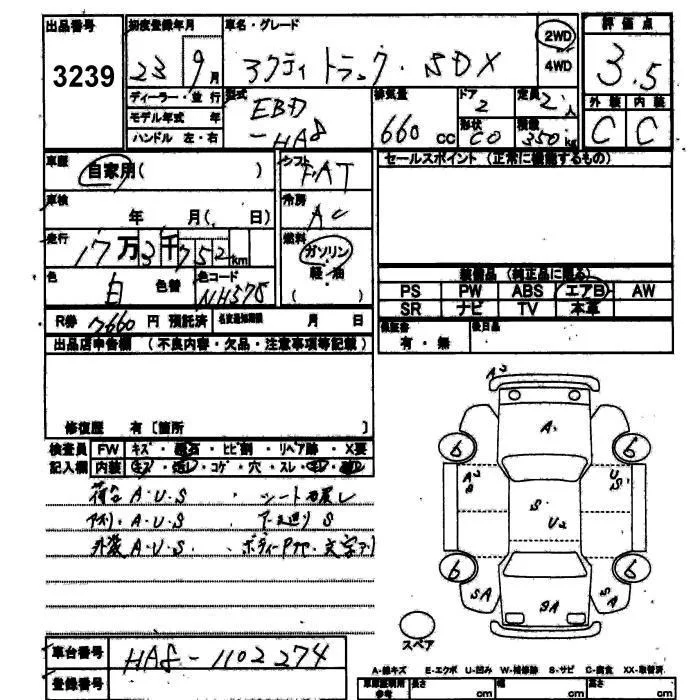 出品番号 初度登録年月 車名・グレード 評価点
3239 23 9月 アクティ トラック・SDX 2WD 4WD 3.5
ディーラー・並行 型式 排気量 ドア 定員 外装 内装
モデル年式 年 EBD 2 2人
ハンドル 左・右 -HA8 660cc 形状 CO 積載 350kg C C
車歴 自家用( ) シフト FAT セールスポイント (正常に機能するもの)
車検 年 月( 日) 冷房 AC
走行 17万3千752km 燃料 ガソリン
色 白 色替 色コード NH578 軽・油
( )
装備品 (純正品に限る)
PS PW ABS エアB AW
SR ナビ TV 本革
R券 7660円 預託済 名変期限 月 日 保証書 有・無 後日品
出品店申告欄 (不良内容・欠品・注意事項等記載)
修復歴 有[箇所 ]
検査員 FW キズ・飛石・ヒビ割・リペア跡・X要
記入欄 内装 キズ・汚レ・コゲ・穴・スレ・
荷台 A・U・S ・シート
アオリ A・U・S ・下廻り S
外装 A・U・S ・ボディー 文字
A2
A
6 6
A2 S U S
S
U2
6 6
SA SA
SA
スペア
車台番号 HA8-1102274
登録番号
A-線キズ E-エクボ U-凹み W-補修跡 S-サビ C-腐食 XX-取替済
車庫証明用参考 長さ cm 幅 cm 高さ cm